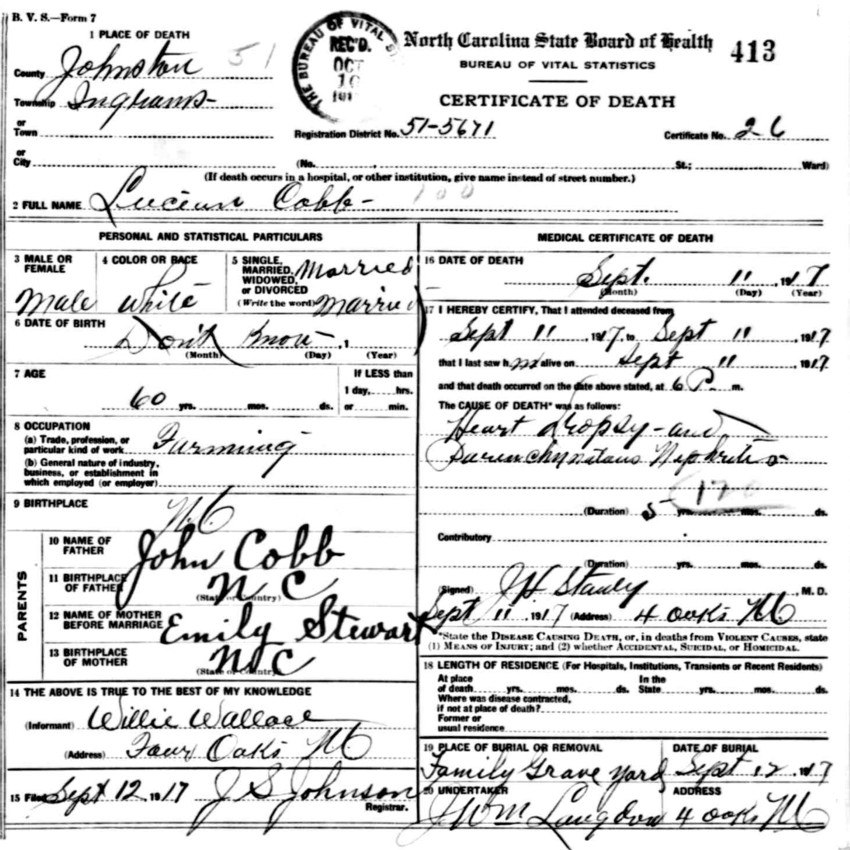 B. V. S.—Form 7
1 PLACE OF DEATH
County Johnston 51
Township Ingrams
or
Town
or
City
THE BUREAU OF VITAL S
REC'D.
OCT
10
North Carolina State Board of Health 413
BUREAU OF VITAL STATISTICS
CERTIFICATE OF DEATH
Registration District No. 51-5671 Certificate No. 26
(No. St.; Ward)
(If death occurs in a hospital, or other institution, give name instead of street number.)
2 FULL NAME Lucious Cobb
PERSONAL AND STATISTICAL PARTICULARS
3 MALE OR FEMALE
Male
4 COLOR OR RACE
White
5 SINGLE, MARRIED, WIDOWED, OR DIVORCED Married
(Write the word) Married
6 DATE OF BIRTH
Don't Know , 1
(Month) (Day) (Year)
7 AGE If LESS than
1 day, hrs.
60 yrs. mos. ds. or min.
8 OCCUPATION
(a) Trade, profession, or
particular kind of work Furming
(b) General nature of industry,
business, or establishment in
which employed (or employer)
9 BIRTHPLACE
N.C
PARENTS
10 NAME OF FATHER John Cobb
11 BIRTHPLACE OF FATHER N. C
(State or Country)
12 NAME OF MOTHER BEFORE MARRIAGE Emily Stewart
13 BIRTHPLACE OF MOTHER N. C
(State or Country)
14 THE ABOVE IS TRUE TO THE BEST OF MY KNOWLEDGE
(Informant) Willie Wallace
(Address) Four Oaks N C
15 Filed Sept 12, 1917 J S Johnson
Registrar.
MEDICAL CERTIFICATE OF DEATH
16 DATE OF DEATH
Sept. 11 , 1917
(Month) (Day) (Year)
17 I HEREBY CERTIFY, That I attended deceased from
Sept 11 , 1917, to Sept 11 , 1917
that I last saw h m alive on Sept 11 , 1917
and that death occurred on the date above stated, at 6 P. m.
The CAUSE OF DEATH* was as follows:
Heart dropsy - and
Parenchymatous Nephritis
120
(Duration) 5 yrs. mos. ds.
Contributory
(Duration) yrs. mos. ds.
(Signed) J H Stanly , M. D.
Sept 11 1917 (Address) 4 oaks N C
*State the DISEASE CAUSING DEATH, or, in deaths from VIOLENT CAUSES, state
(1) MEANS OF INJURY; and (2) whether ACCIDENTAL, SUICIDAL, or HOMICIDAL.
18 LENGTH OF RESIDENCE (For Hospitals, Institutions, Transients or Recent Residents)
At place In the
of death yrs. mos. ds. State yrs. mos. ds.
Where was disease contracted,
if not at place of death?
Former or
usual residence
19 PLACE OF BURIAL OR REMOVAL DATE OF BURIAL
Family Grave yard Sept 12 , 1917
20 UNDERTAKER ADDRESS
J. Wm Langdon 4 oaks N C